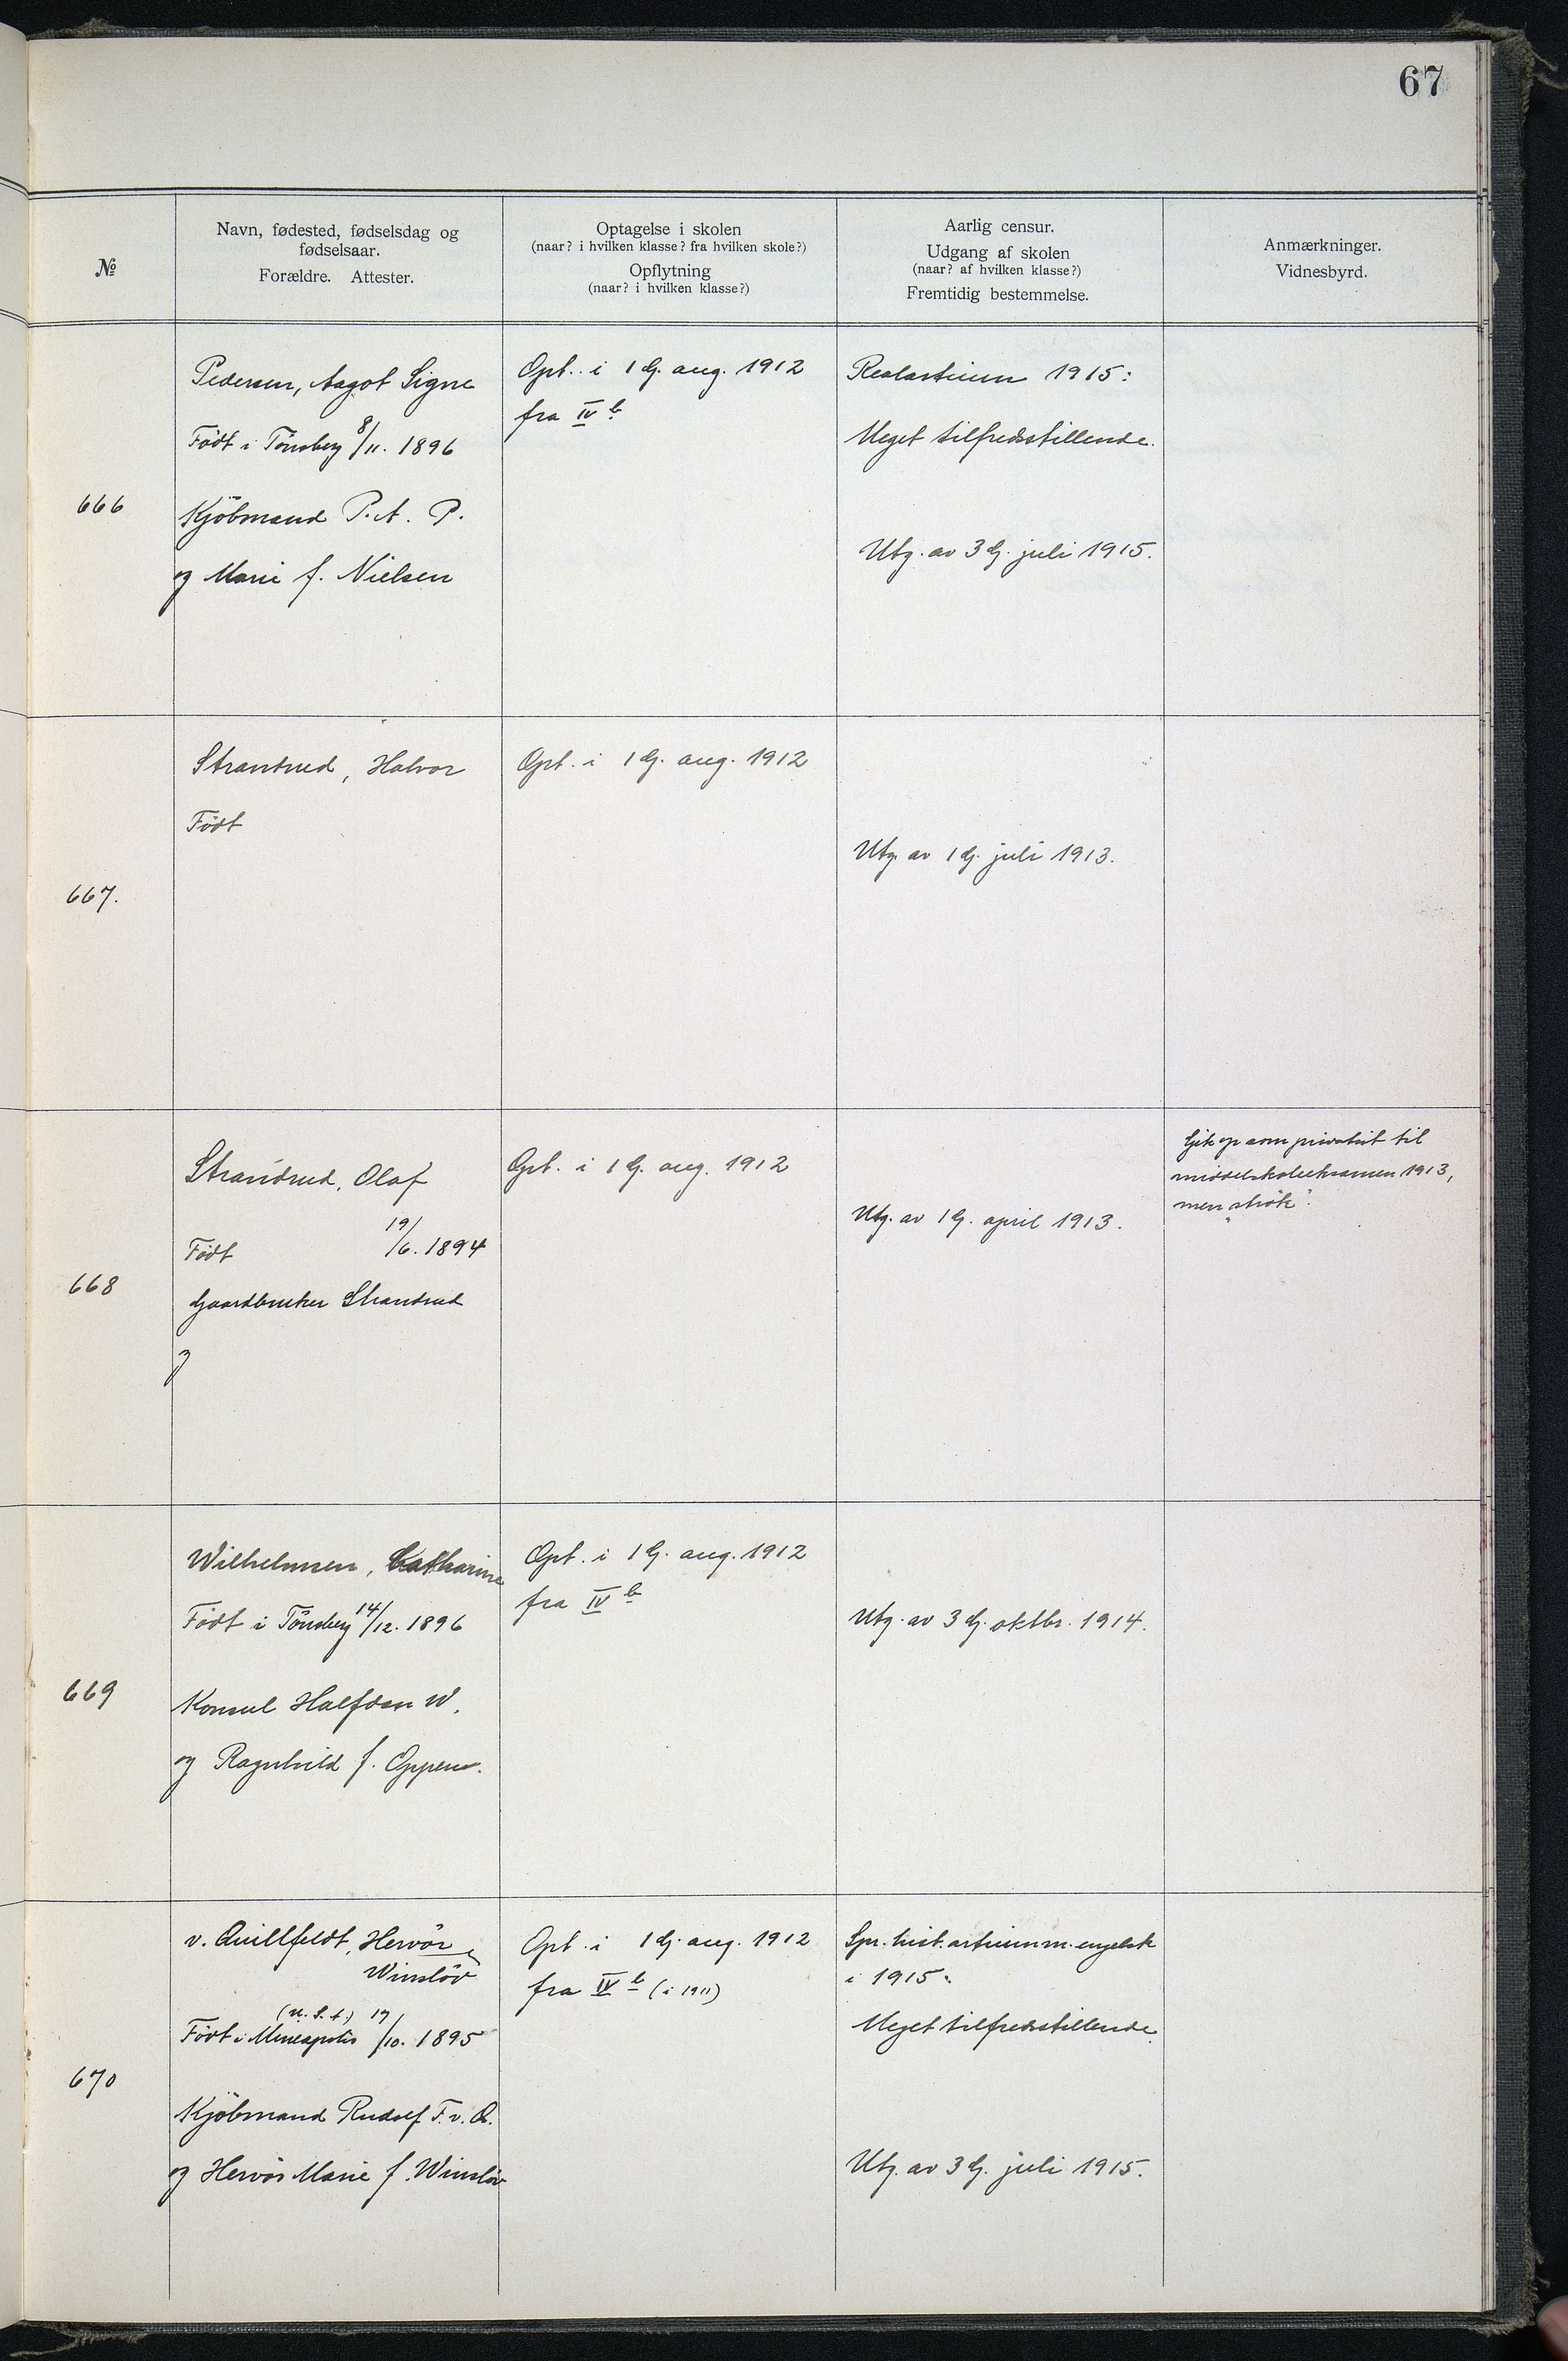 67
№
Navn, fødested, fødselsdag og
fødselsaar.
Forældre. Attester.
Optagelse i skolen
(naar? i hvilken klasse? fra hvilken skole?)
Opflytning
(naar? i hvilken klasse?)
Aarlig censur.
Udgang af skolen
(naar? af hvilken klasse?)
Fremtidig bestemmelse.
Anmærkninger.
Vidnesbyrd.
666
Pedersen, Aagot Signe
Födt i Tönsberg 8/11. 1896
Kjöbmand P. A. P.
og Marie f. Nielsen
Opt. i 1 G. aug. 1912
fra IV b
Realartium 1915:
Meget tilfredsstillende.
Utg. av 3 G. juli 1915.
667.
Strandrud, Halvor
Födt
Opt. i 1 G. aug. 1912
Utg. av 1 G. juli 1913.
668
Strandrud, Olaf
Födt 19/6. 1894
Gaardbruker Strandrud
og
Opt. i 1 G. aug. 1912
Utg. av 1 G. april 1913.
Gik op som privatist til
middelskoleeksamen 1913,
men „strök".
669
Wilhelmsen, Catharine
Födt i Tönsberg 14/12. 1896
Konsul Halfdan W.
og Ragnhild f. Oppen.
Opt. i 1 G. aug. 1912
fra IV b
Utg. av 3 G. oktbr. 1914.
670
v. Quillfeldt, Hervör
Winslöv
(U. S. A.)
Födt i Mineapolis 17/10. 1895
Kjöbmand Rudolf F. v. Q.
og Hervör Marie f. Winslöv
Opt. i 1 G. aug. 1912
fra IV b (i 1911)
Spr. hist. artium m. engelsk
i 1915:
Meget tilfredsstillende.
Utg. av 3 G. juli 1915.